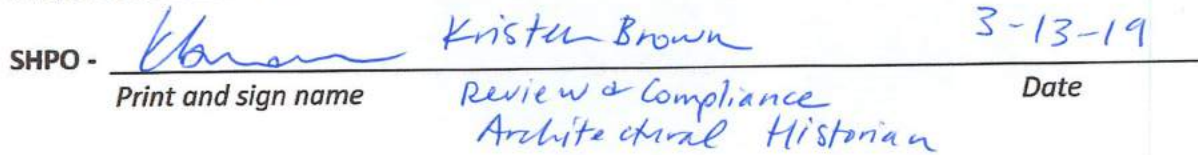 SHPO - Kristen Brown 3-13-19
Print and sign name Review & Compliance Date
Architectural Historian